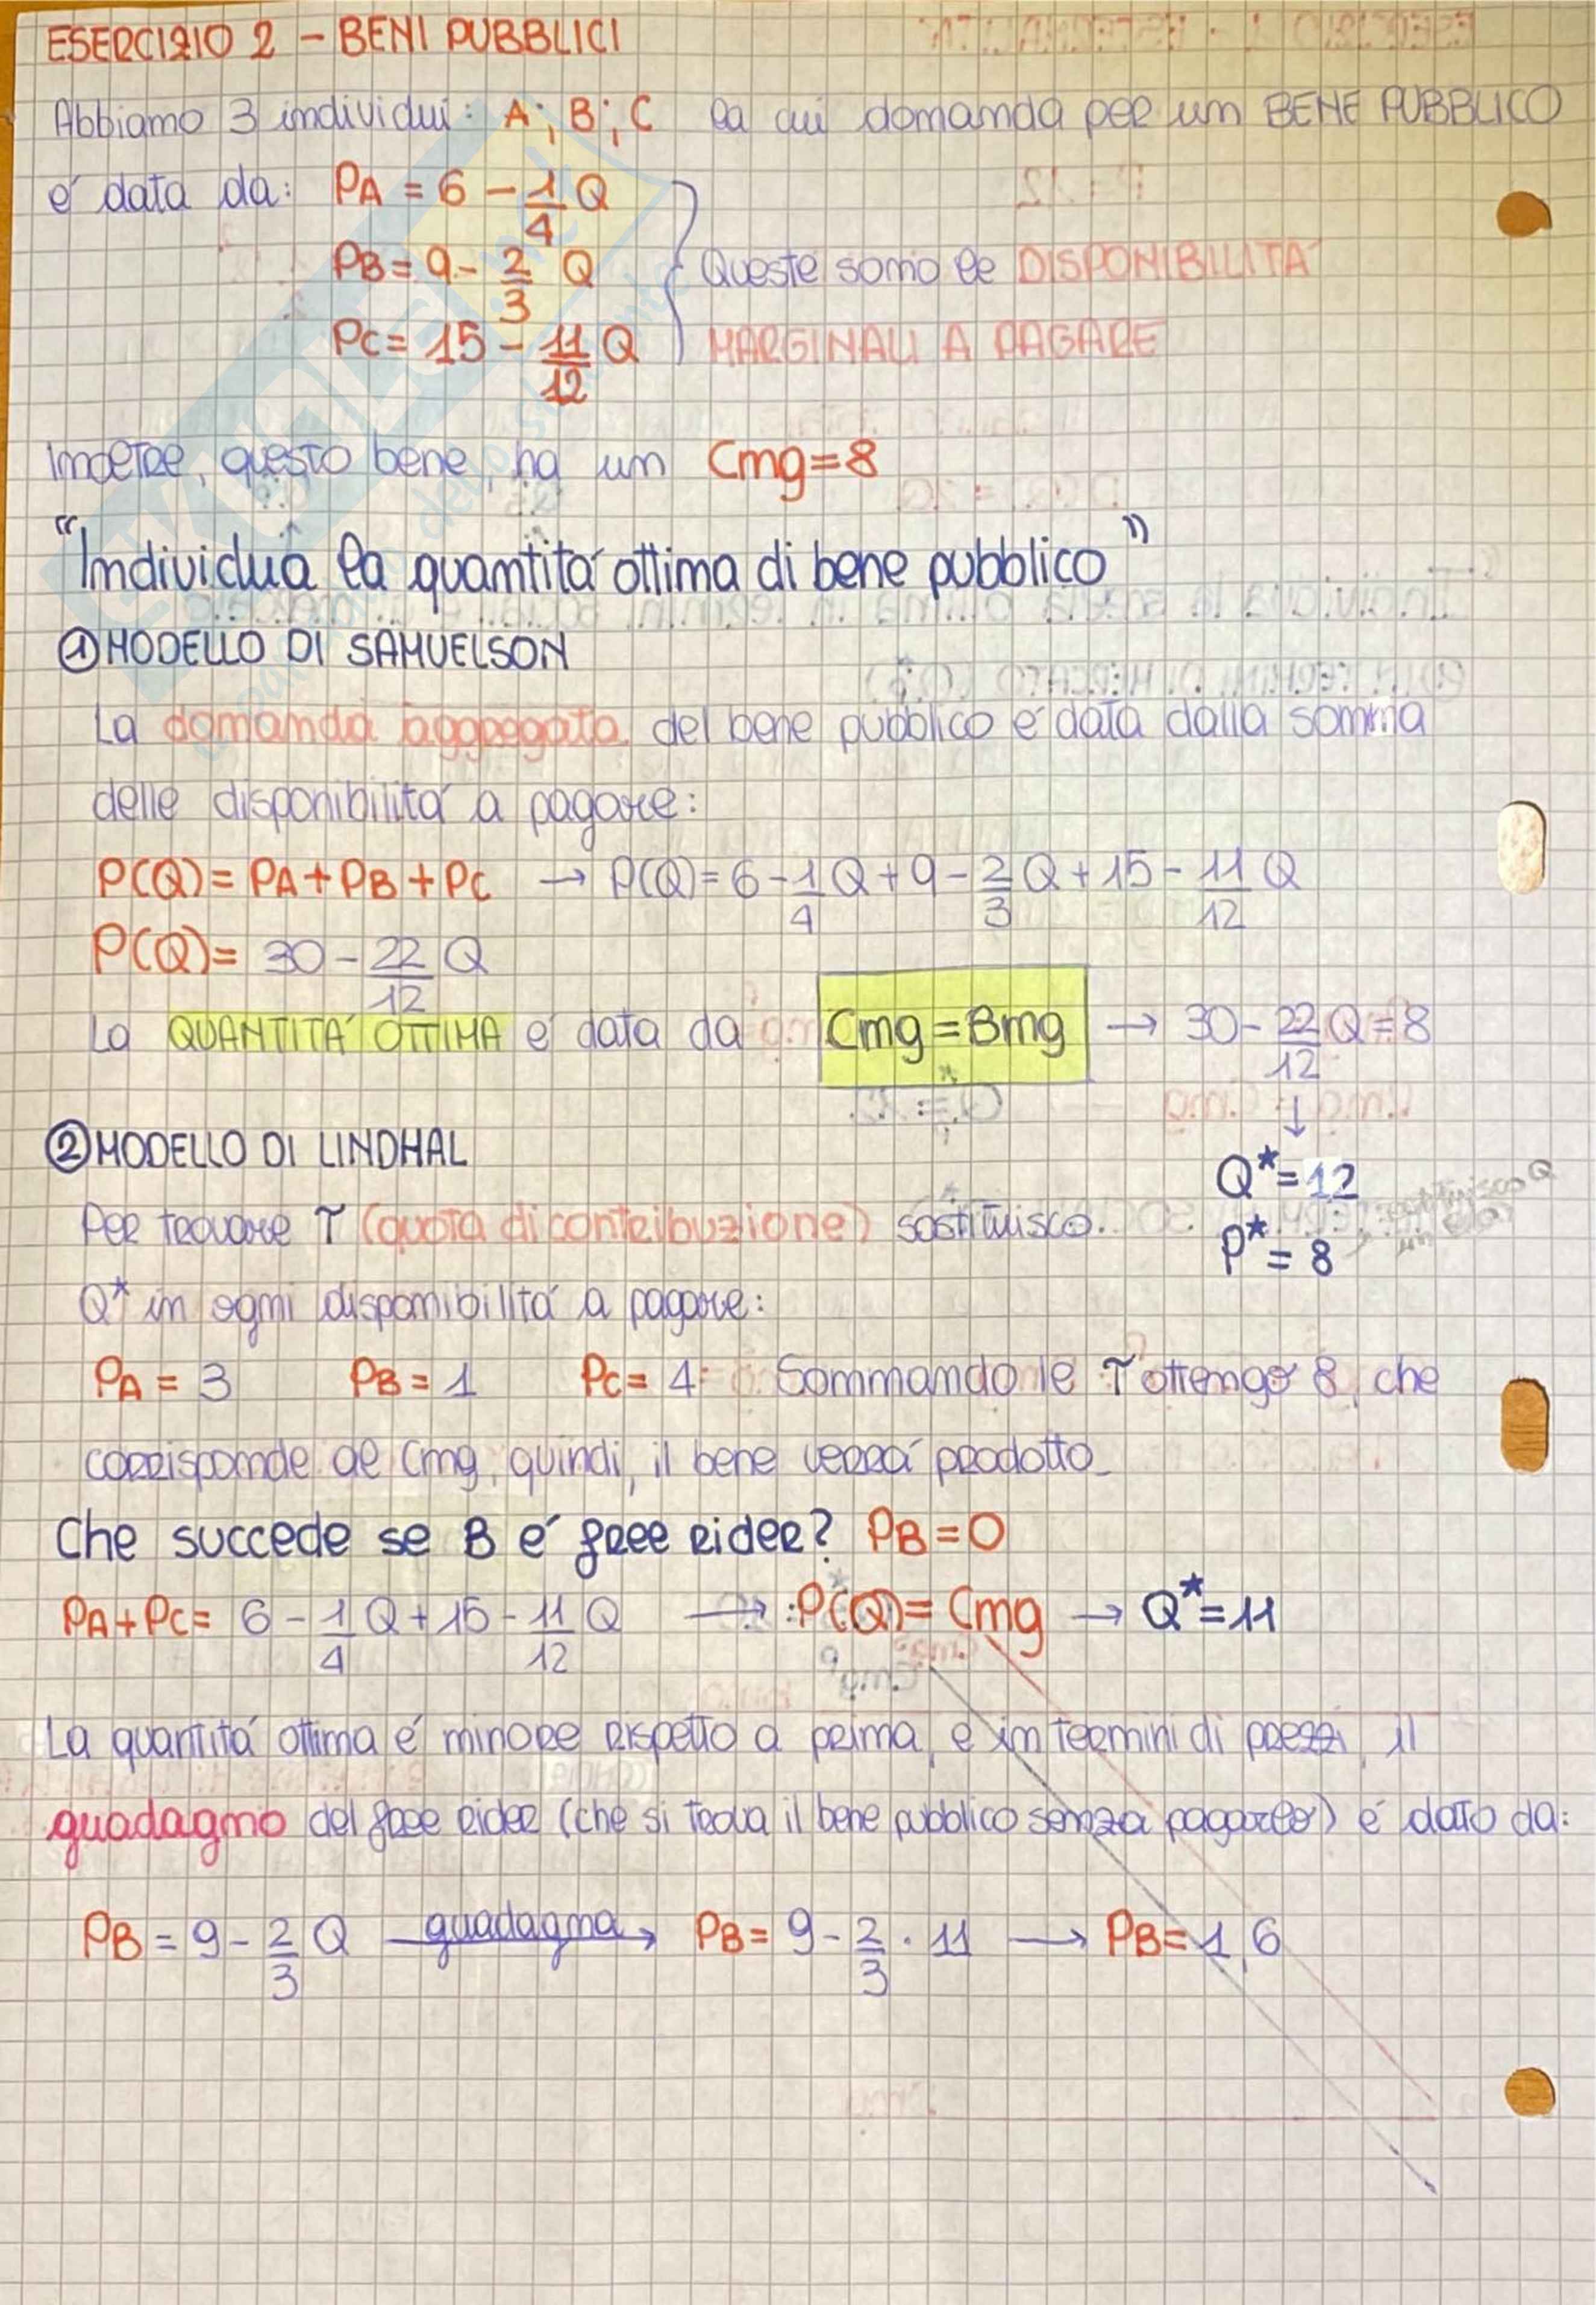 ESERCIZIO 2 - BENI PUBBLICI
Abbiamo 3 individui: A; B; C la cui domanda per un BENE PUBBLICO
é data da: PA = 6 - 1/4 Q
PB = 9 - 2/3 Q Queste sono le DISPONIBILITÀ
PC = 15 - 11/12 Q MARGINALI A PAGARE
Inoltre, questo bene, ha un Cmg=8
"Individua la quantità ottima di bene pubblico"
① MODELLO DI SAMUELSON
La domanda aggregata del bene pubblico é data dalla somma
delle disponibilità a pagare:
P(Q)= PA+PB+PC → P(Q)= 6 - 1/4 Q + 9 - 2/3 Q + 15 - 11/12 Q
P(Q)= 30 - 22/12 Q
La QUANTITÀ OTTIMA é data da Cmg = Bmg → 30 - 22/12 Q = 8
↓
② MODELLO DI LINDHAL
Q*=12
Per trovare T (quota di contribuzione) sostituisco
P*=8 sostituisco Q in P(Q)
Q* in ogni disponibilità a pagare:
PA = 3 PB = 1 PC = 4 Sommando le T ottengo 8, che
corrisponde al Cmg, quindi, il bene verrà prodotto
Che succede se B é free rider? PB=0
PA+PC= 6 - 1/4 Q + 15 - 11/12 Q → P(Q)= Cmg → Q*=11
La quantità ottima é minore rispetto a prima, e in termini di prezzi, il
guadagno del free rider (che si trova il bene pubblico senza pagarlo) é dato da:
PB = 9 - 2/3 Q guadagna → PB = 9 - 2/3 · 11 → PB = 1,6